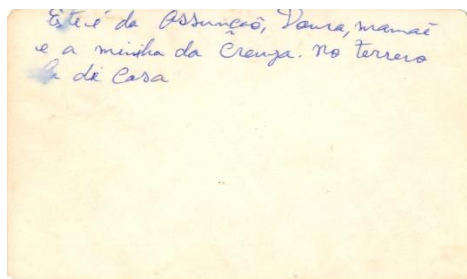 Este é da Assunção, Vanra, mamãe
e a minha da Crenza. no terrero
la de Casa